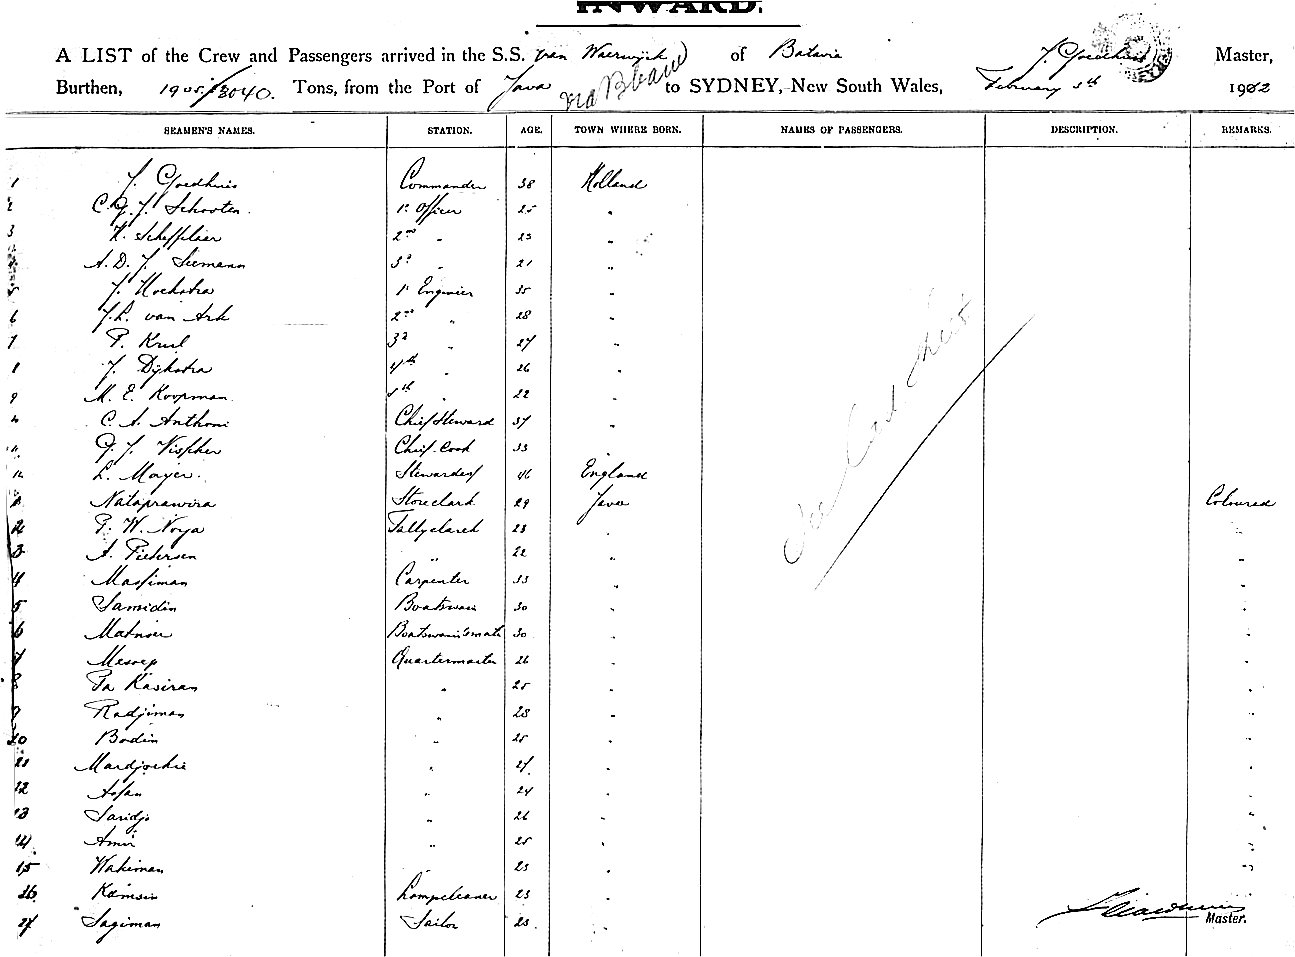 INWARD.
A LIST of the Crew and Passengers arrived in the S.S. van Waerwijck of Batavia J. Goedhuis Master,
Burthen, 1905/3040. Tons, from the Port of Java via to SYDNEY, New South Wales, February 5th 1902
SEAMEN'S NAMES. STATION. AGE. TOWN WHERE BORN. NAMES OF PASSENGERS. DESCRIPTION. REMARKS.
1 J. Goedhuis Commander 38 Holland
2 C. G. J. Schooten 1e Officer 25 "
3 K. Scheffelaar 2nd " 23 "
4 A. D. J. Siemann 3d " 21 "
5 J. Hoekstra 1e Engineer 35 "
6 J. L. van Ark 2nd " 28 "
7 P. Krul 3d " 27 "
8 J. Dijkstra 4th " 26 "
9 M. E. Koopman 5th " 22 "
C. A. Anthoni Chief Steward 37 "
11 G. J. Visscher Chief Cook 33 "
12 L. Mayer. Stewardess 46 England
1 Nataprawira Storeclark 29 Java Coloured
2 P. W. Noya Tallyclarck 23 " "
3 A. Pietersen " 22 " "
4 Massiman Carpenter 33 " "
5 Samidin Boatswain 30 " "
6 Matnoer Boatswain's mate 30 " "
7 Mesoep Quartermaster 26 " "
8 Pa Kasiran " 25 " "
9 Radjiman " 28 " "
10 Bodin " 25 " "
21 Mardjoekie " 27 " "
12 Assan " 24 " "
13 Saridjo " 26 " "
14 Amir " 25 " "
15 Wakiman 23 " "
26 Kamsin Lampcleaner 23 " "
27 Sagiman Sailor 23 "
Master.